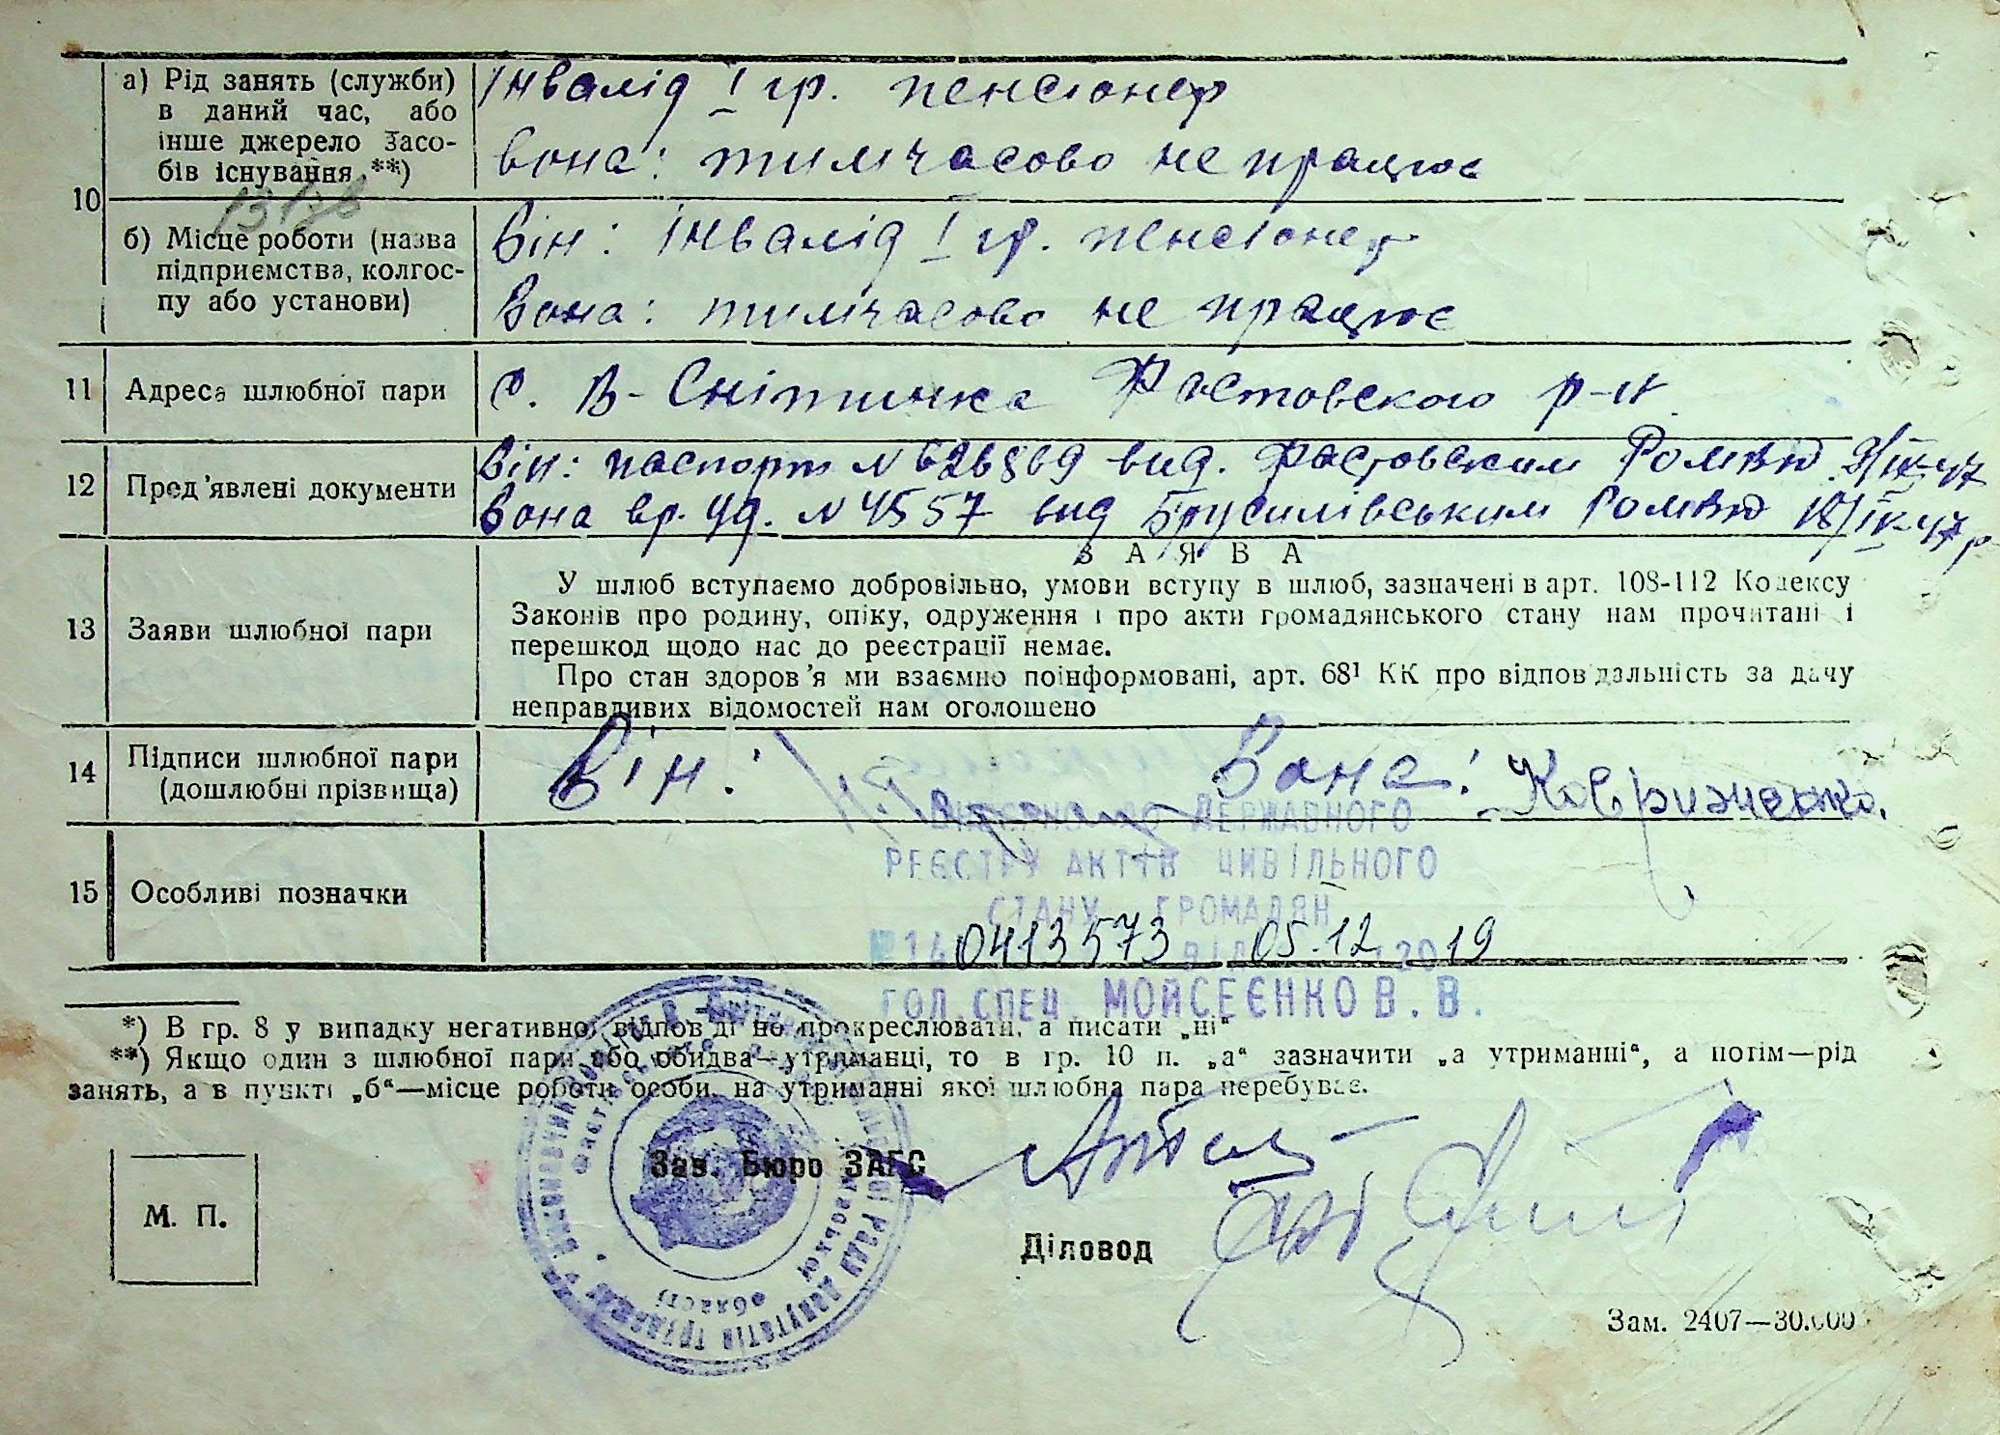 10
а) Рід занять (служби) в даний час, або інше джерело засобів існування **)
Інвалід І гр. пенсіонер
вона: тимчасово не працює
б) Місце роботи (назва підприємства, колгоспу або установи)
Він: інвалід І гр. пенсіонер
Вона: тимчасово не працює
11 Адреса шлюбної пари
с. В-Снітинка Фастовского р-н
12 Пред'явлені документи
Він: паспорт N 626869 вид. Фастовским Ромвд
Вона вр. уд. N 4557 вид Брусилівським Ромвд 18/ІV-47 р
13 Заяви шлюбної пари
ЗАЯВА
У шлюб вступаємо добровільно, умови вступу в шлюб, зазначені в арт. 108-112 Кодексу
Законів про родину, опіку, одруження і про акти громадянського стану нам прочитані і
перешкод щодо нас до реєстрації немає.
Про стан здоров'я ми взаємно поінформовані, арт. 68¹ КК про відповідальність за дачу
неправдивих відомостей нам оголошено
14 Підписи шлюбної пари
(дошлюбні прізвища)
Він: Вона: Ковриженко.
ДО ДЕРЖАВНОГО
РЕЄСТРУ АКТІВ ЦИВІЛЬНОГО
СТАНУ ГРОМАДЯН
15 Особливі позначки
№ 14 0413573 від 05.12 2019
ГОЛ. СПЕЦ. МОЙСЕЄНКО В. В.
*) В гр. 8 у випадку негативної відповіді не прокреслювати, а писати „ні“
**) Якщо один з шлюбної пари або обидва—утриманці, то в гр. 10 п. „а“ зазначити „а утриманні“, а потім—рід
занять, а в пункті „б“—місце роботи особи, на утриманні якої шлюбна пара перебуває.
Зав. Бюро ЗАГС
М. П.
Діловод
Зам. 2407—30.000